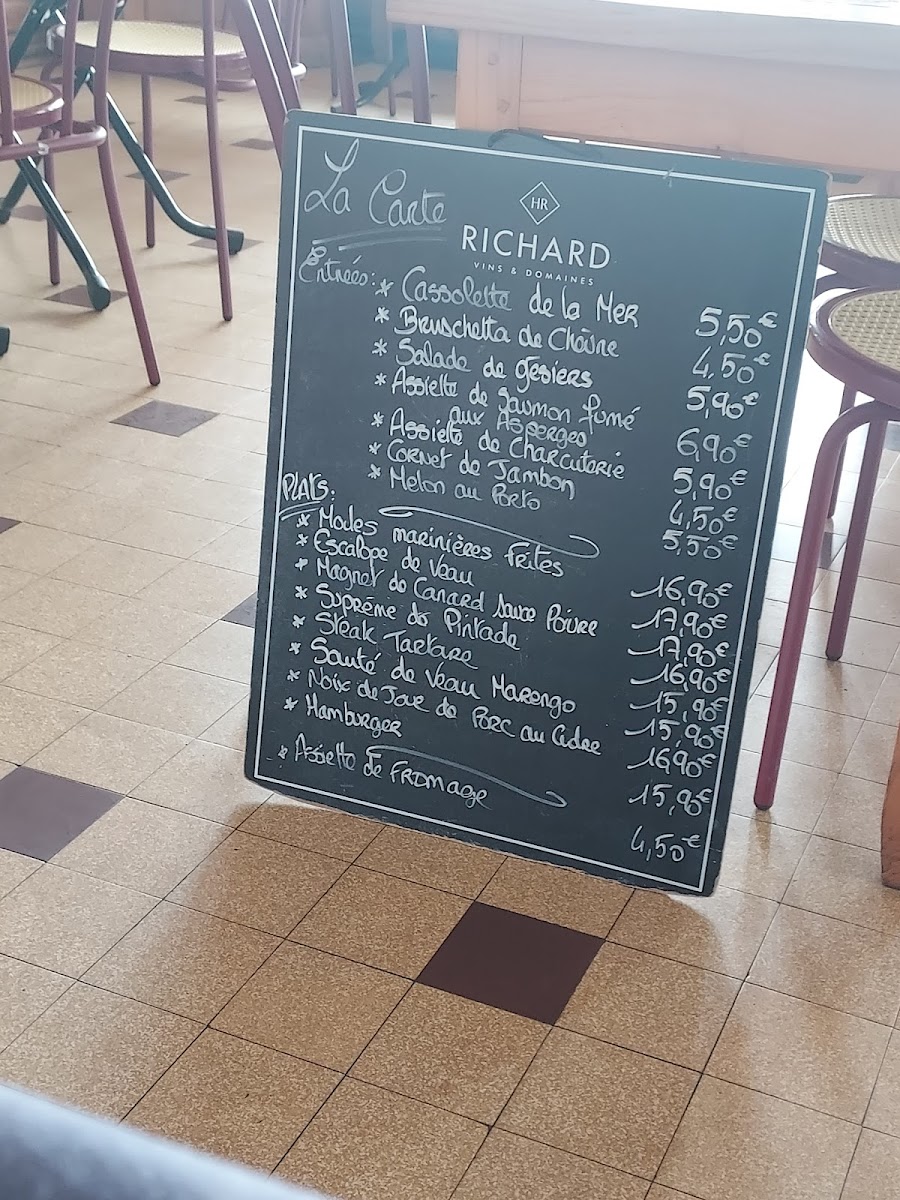 La Carte
HR
RICHARD
VINS & DOMAINES
Entrées:
* Cassolette de la Mer 5,50€
* Bruschetta de Chèvre 4,50€
* Salade de gésiers 5,90€
* Assiette de Saumon fumé
aux Asperges 6,90€
* Assiette de Charcuterie 5,90€
* Cornet de Jambon 4,50€
* Melon au Porto 5,50€
Plats:
* Moules marinières Frites 16,90€
* Escalope de Veau 17,90€
* Magret de Canard Sauce Poivre 17,90€
* Suprême de Pintade 16,90€
* Steak Tartare 15,90€
* Sauté de Veau Marengo 15,90€
* Noix de Joue de Porc au Cidre 16,90€
* Hamburger 15,90€
* Assiette de Fromage 4,50€